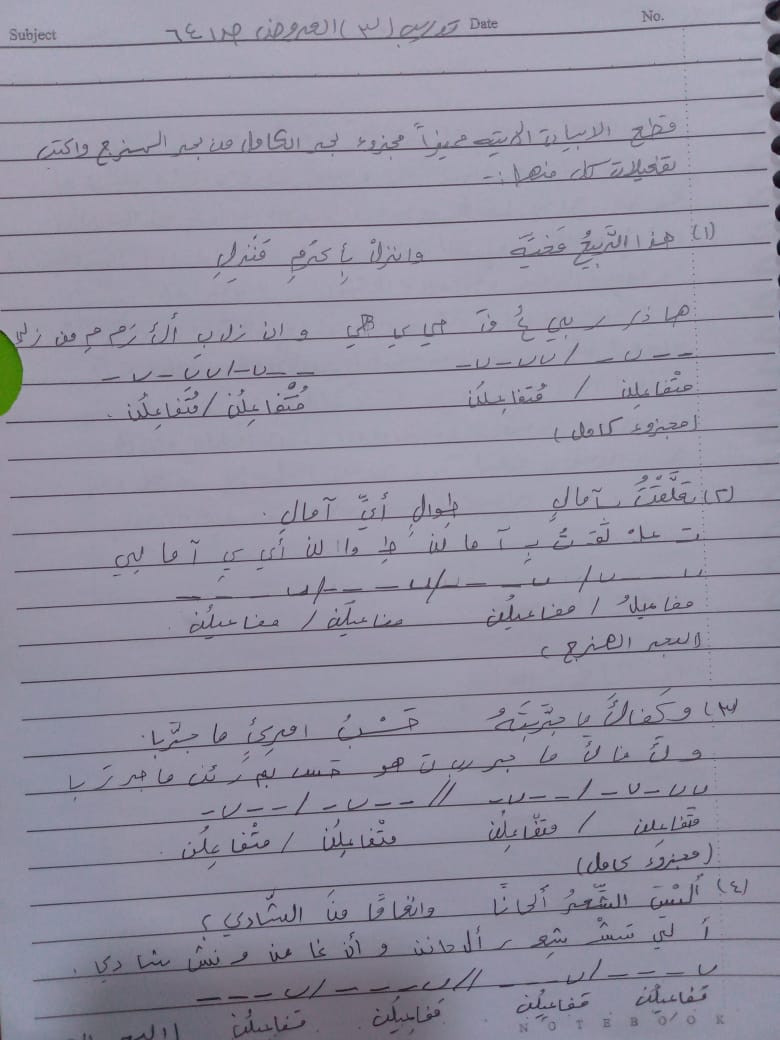 Subject تدريب (٣) العروض صـ ١٦٤ Date No.
قطع الابيات الاتيه مميزاً مجزوء بحر الكامل من بحر الهزج واكتب
تفعيلات كل منها:-
(١) هذا الرَّبِيعُ فَحَيِّهِ وانزلْ بِأكرَمِ مَنْزِلِ
ها ذر ر بي عُ فـَ حي ي هي و ان زل بِ أك رَ مِ من زلي
- - ں - / ں ں - ں - - - ں - / ں ں - ں -
متْفاعلن / مُتَفاعِلُن مُتْفاعِلُن / مُتَفاعِلُن .
(مجزوء كامل)
(٢) تَعَلَّقْتُ بآمالٍ طِوالٍ أيَّ آمالِ .
تـَ علـ لَقـ تُ بـِ آ ما لن طِ وا لن أي يَ آ ما لي
ں - - ں / ں - - - / ں - - - / ں - - -
مفاعيلُ / مفاعيلُن مفاعيلُن / مفاعيلُن .
(البحر الهزج)
(٣) وكَفاكَ ما جَرَّبتَهُ حَسْبُ امرِئٍ ما جَرَّبا.
و كَ فا كَ ما جر رب تَ هو حس بم رئن ما جر رَ با
ں ں - ں - / - - ں - // - - ں - / - - ں -
متَفاعلن / متْفاعِلُن متْفاعِلُن / متْفاعِلُن .
(مجزوء كامل)
(٤) أليْسَ الشِّعرُ ألحانًا وانغامًا مِنَ الشَّادي ؟
أ لي سشْ شعـ ر ألـ حانن و أن غا من م نشْ شا دي .
ں - - - / ں - - - // ں - - - / ں - - -
مَفاعيلُن مَفاعيلُن مَفاعيلُن مَفاعيلُن
NOTEBOOK